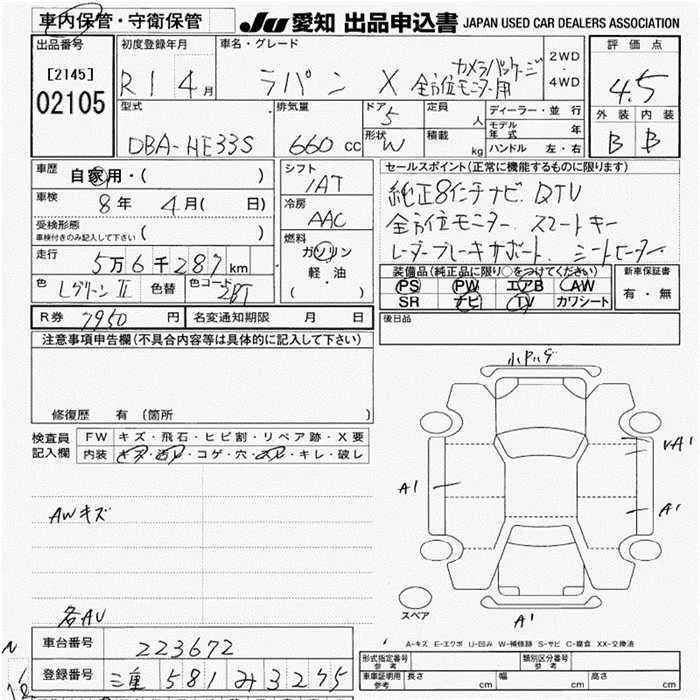 車内保管・守衛保管
JU 愛知 出品申込書 JAPAN USED CAR DEALERS ASSOCIATION
出品番号
[2145]
02105
初度登録年月
R1 4月
車名・グレード
ラパン X 全方位モニター用
カメラパッケージ
2WD
4WD
評価点
4.5
外装 内装
B B
型式
DBA-HE33S
排気量
660 cc
ドア 5
形状 W
定員 人
積載 kg
ディーラー・並行
モデル年式 年
ハンドル 左・右
車歴 自家用・( )
車検 8年 4月( 日)
受検形態
車検付きのみ記入して下さい ( )
走行
5万6千287km
色 Lグリーン II 色替 色コード ZPT
シフト
IAT
冷房
AAC
燃料
ガソリン
軽・油
( )
セールスポイント(正常に機能するものに限ります)
純正8インチナビ. DTV
全方位モニター. スマートキー
レーダーブレーキサポート. シートヒーター
装備品(純正品に限り○をつけてください)
PS PW エアB AW
SR ナビ TV カワシート
新車保証書
有・無
R券 7950 円 名変通知期限 月 日
後日品
注意事項申告欄(不具合内容等は具体的に記入して下さい)
修復歴 有 (箇所 )
検査員
記入欄
FW キズ・飛石・ヒビ割・リペア跡・X要
内装 キズ・汚レ・コゲ・穴・スレ・キレ・破レ
AWキズ
各AU
A1
A1
A1
スペア
A-キズ E-エクボ U-凹み W-補修跡 S-サビ C-腐食 XX-交換済
車台番号 223672
登録番号 三重 581 み 3245
型式指定番号
参考
類別区分番号
参考
車庫証明用
参考
長さ cm 幅 cm 高さ cm